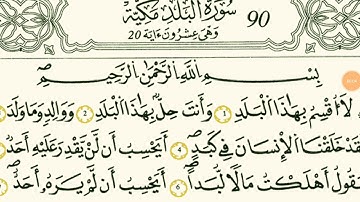 سُورَةُ الْبَلَدِ مَكِّيَّة 90
وَهِىَ عِشْرُونَ ءَايَة 20
بِسْمِ اللَّهِ الرَّحْمَٰنِ الرَّحِيمِ
لَا أُقْسِمُ بِهَٰذَا الْبَلَدِ 1 وَأَنتَ حِلٌّ بِهَٰذَا الْبَلَدِ 2 وَوَالِدٍ وَمَا وَلَدَ
قَدْ خَلَقْنَا الْإِنسَانَ فِي كَبَدٍ 4 أَيَحْسِبُ أَن لَّن يَقْدِرَ عَلَيْهِ أَحَدٌ
يَقُولُ أَهْلَكْتُ مَالًا لُّبَدًا 6 أَيَحْسِبُ أَن لَّمْ يَرَهُ أَحَدٌ